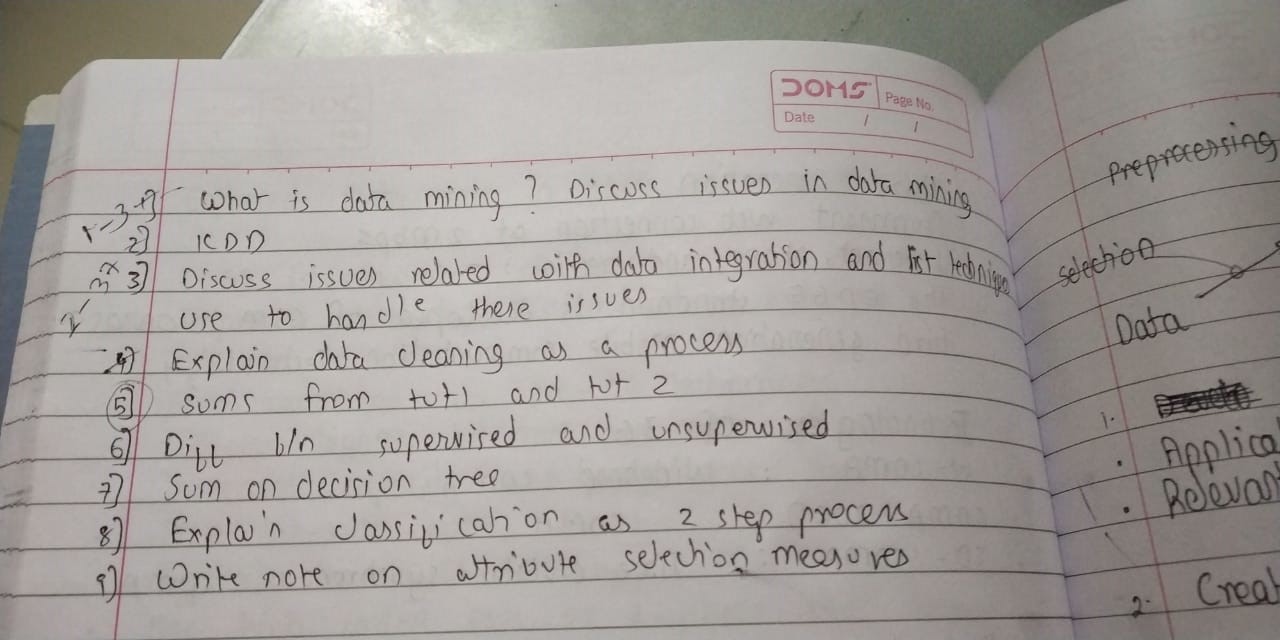 DOMS
Page No.
Date / /
1] What is data mining ? Discuss issues in data mining
2] KDD
3] Discuss issues related with data integration and list technique
use to handle these issues
4] Explain data cleaning as a process
5] Sums from tut1 and tut 2
6] Diff b/n supervised and unsupervised
7] Sum on decision tree
8] Explain classification as 2 step process
9] Write note on attribute selection measures
Preprocessing
selection
Data
1.
• Applica
• Relevan
2. Creat